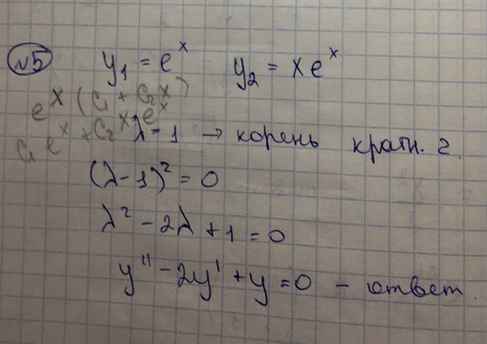 №5 y₁ = eˣ y₂ = xeˣ
eˣ(C₁ + C₂x)
C₁eˣ + C₂xeˣ
λ = 1 → корень кратн. 2.
(λ - 1)² = 0
λ² - 2λ + 1 = 0
y'' - 2y' + y = 0 - ответ.